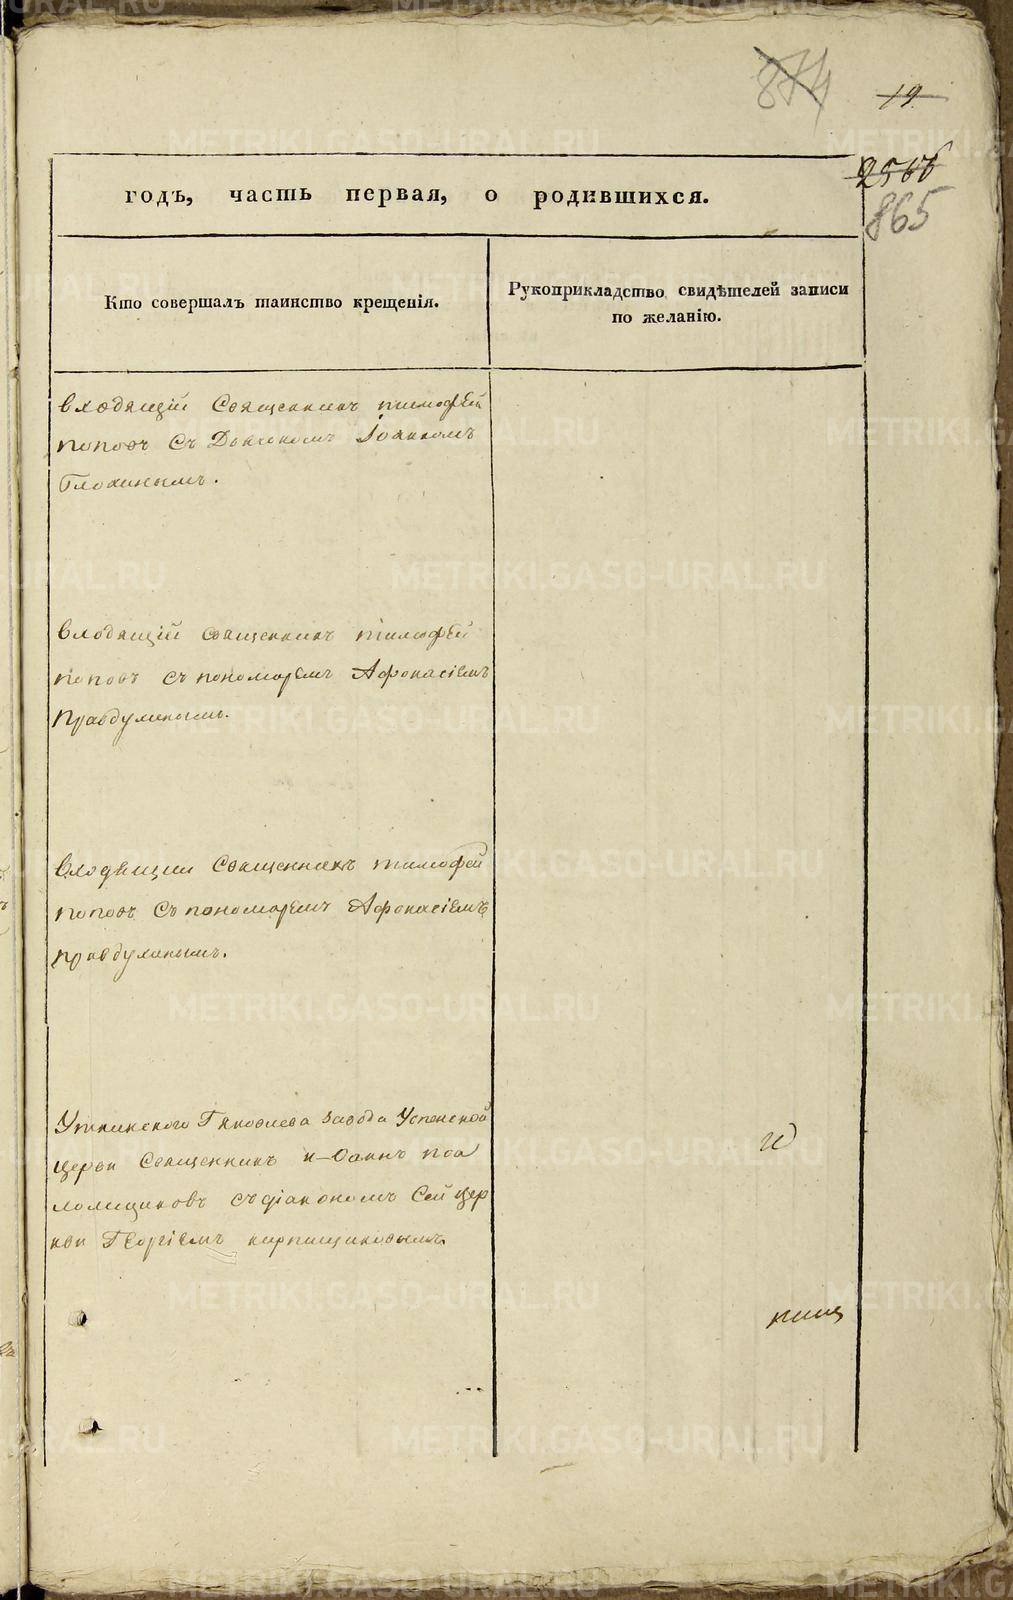 874
19
2566
865
годъ, часть первая, о родившихся.
Кто совершалъ таинство крещенія.
Рукоприкладство свидѣтелей записи
по желанію.
входящій Священникъ тимофей
попов съ Дьякономъ Іоанномъ
Входящій священникъ тимофей
поповъ съ пономаремъ Афонасіемъ
Правдухинымъ.
Входящии Священникъ тимофей
поповъ съ пономаремъ Афонасіемъ
правдухинымъ.
Уткинского Г Яковлева завода Успенской
церкви Священникъ Иоаннъ поа
ломщиковъ съ діакономъ Сей цер
кви Георгіемъ кирпищиковымъ
METRIKI.GASO-URAL.RU